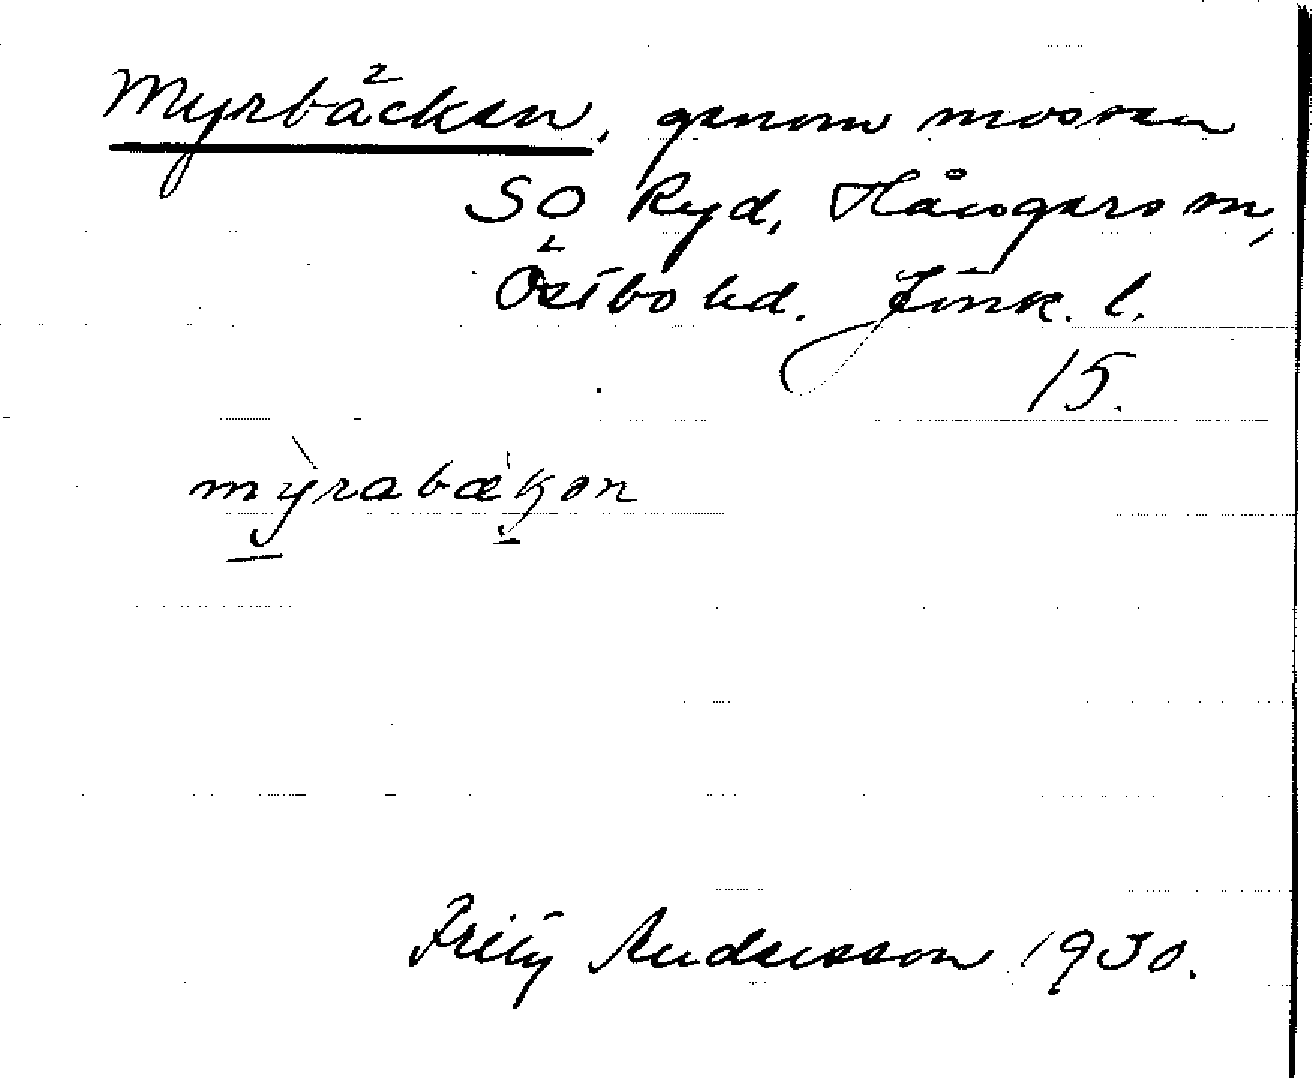 Myrbäcken, genom mossen
SO Ryd, Hångers sn,
Östbo hd. Jönk. l.
15.
mỳ̠rabæ̀kən
Fritz Andersson 1930.